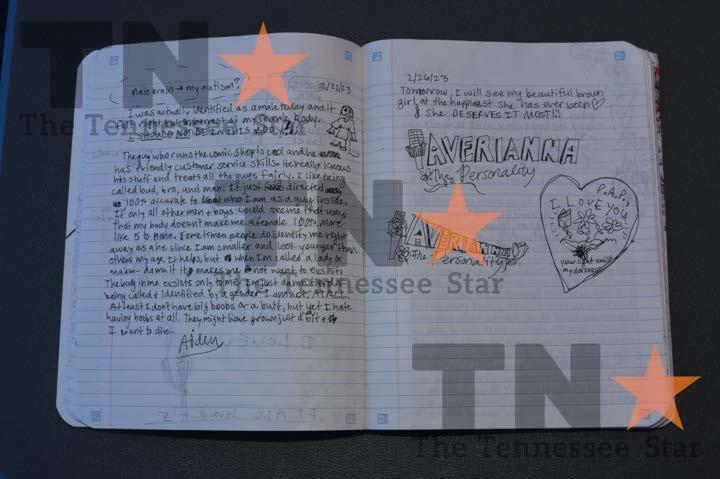 male brain → my autism?
2/21/23
I was actually identified as a male today and it
felt right
body.
I SHOULD NOT BE IN THIS BODY!!
The guy who runs the comic shop is cool and he
has friendly customer service skills. He really knows
his stuff and treats all the guys fairly. I like being
called bud, bro, and man. It just directed
100% accurate to who I am as a guy inside.
If only all other men + boys could see me that way.
That my body doesn't make me a female 100%, more
like 5 to none. Sometimes people do identify me right
away as a he since I am smaller and look younger than
others my age. It helps, but when I'm called a lady or
ma'm- damn it, makes me not want to exist.
The body in me exists only to me. I'm just so tired of
being called + identified by a gender I am not. AT ALL.
At least I don't have big boobs or a butt, but yet I hate
having boobs at all. They might have grown just a bit +
I want to die.
Aiden
2/26/23
Tomorrow, I will see my beautiful brown
girl at the happiest she has ever been
& she DESERVES IT MOST!!
AVERIANNA
The Personality
AVERIANNA
The Personality
P.A.P.,
I LOVE YOU
your light amist
my darkness
TN
The Tennessee Star
TN
The Tennessee Star
TN
The Tennessee Star